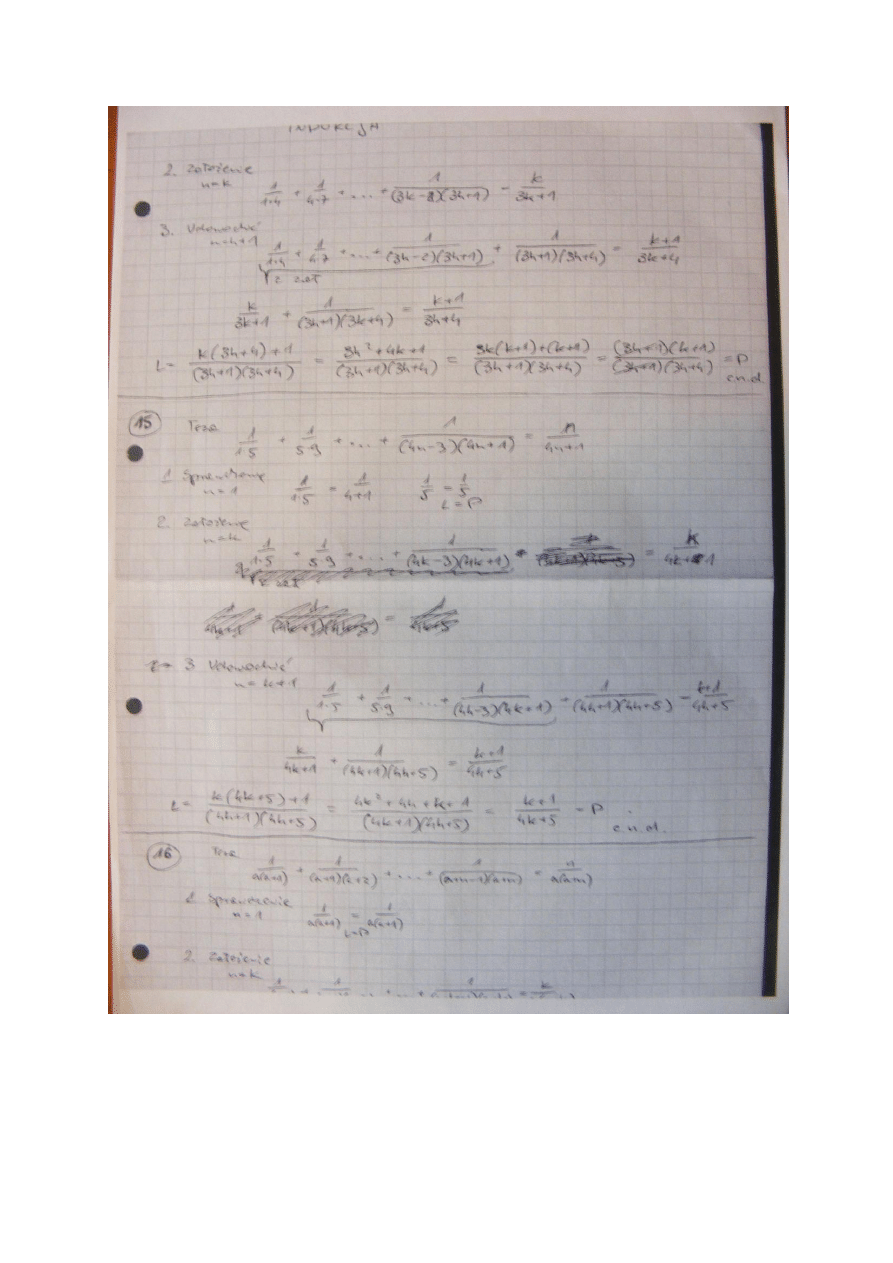 INDUKCJA
2. Założenie
n=k
1/(1·4) + 1/(4·7) + ... + 1/((3k-2)(3k+1)) = k/(3k+1)
3. Udowodnić
n=k+1
1/(1·4) + 1/(4·7) + ... + 1/((3k-2)(3k+1)) + 1/((3k+1)(3k+4)) = (k+1)/(3k+4)
z zał
k/(3k+1) + 1/((3k+1)(3k+4)) = (k+1)/(3k+4)
L= (k(3k+4)+1)/((3k+1)(3k+4)) = (3k²+4k+1)/((3k+1)(3k+4)) = (3k(k+1)+(k+1))/((3k+1)(3k+4)) = ((3k+1)(k+1))/((3k+1)(3k+4)) = P
c.n.d
15 Teza 1/(1·5) + 1/(5·9) + ... + 1/((4n-3)(4n+1)) = n/(4n+1)
1 Sprawdzenie
n=1
1/(1·5) = 1/(4+1) 1/5 = 1/5
L=P
2. Założenie
n=k
1/(1·5) + 1/(5·9) + ... + 1/((4k-3)(4k+1)) = k/(4k+1)
3 Udowodnić
n=k+1
1/(1·5) + 1/(5·9) + ... + 1/((4k-3)(4k+1)) + 1/((4k+1)(4k+5)) = (k+1)/(4k+5)
k/(4k+1) + 1/((4k+1)(4k+5)) = (k+1)/(4k+5)
L= (k(4k+5)+1)/((4k+1)(4k+5)) = (4k²+4k+k+1)/((4k+1)(4k+5)) = (k+1)/(4k+5) = P
c.n.d.
16 Teza
1/(a(a+1)) + 1/((a+1)(a+2)) + ... + 1/((a+n-1)(a+n)) = n/(a(a+n))
1. Sprawdzenie
n=1
1/(a(a+1)) = 1/(a(a+1))
L=P
2. Założenie
n=k